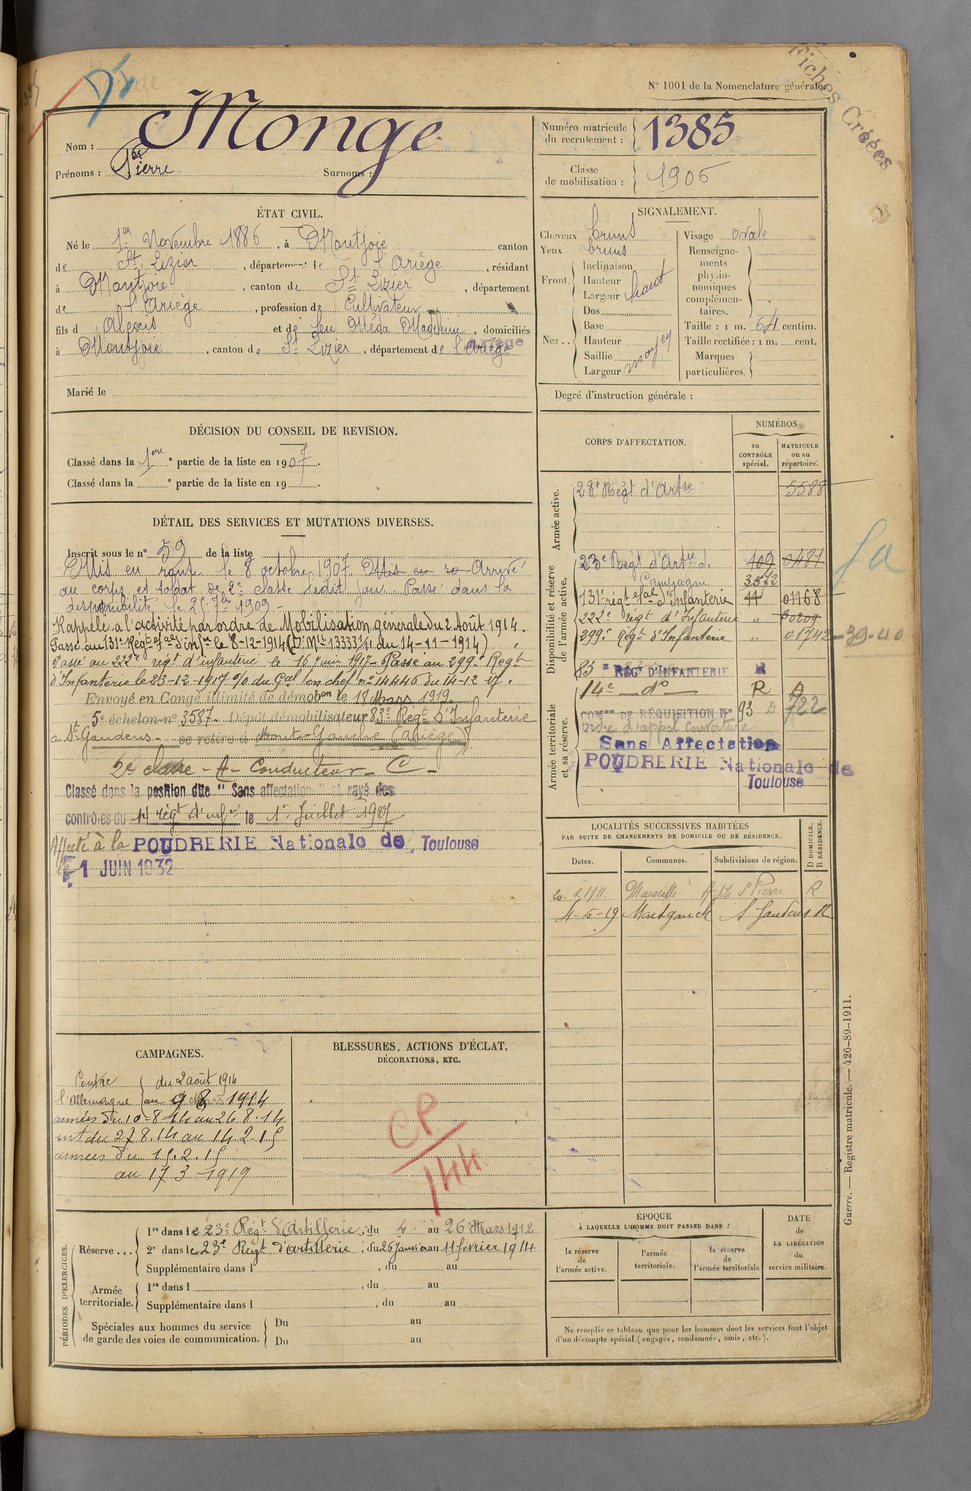 N° 1001 de la Nomenclature générale.
Fiches Créées
Nom : Monge
Prénoms : Pierre Surnoms :
Numéro matricule du recrutement : 1385
Classe de mobilisation : 1906
ÉTAT CIVIL.
Né le 1er Novembre 1886, à Montjoie canton
de St Lizier, département de l'Ariège, résidant
à Montjoie, canton de St Lizier, département
de l'Ariège, profession de Cultivateur
fils d'Alexis et de feu Méda Madeleine, domiciliés
à Montjoie, canton de St Lizier, département de l'Ariège
Marié le
SIGNALEMENT.
Cheveux bruns
Yeux bruns
Front
Inclinaison
Hauteur haut
Largeur
Nez
Dos
Base
Hauteur moyen
Saillie
Largeur
Visage ovale
Renseignements physionomiques complémentaires.
Taille : 1 m. 64 centim.
Taille rectifiée : 1 m. cent.
Marques particulières.
Degré d'instruction générale :
DÉCISION DU CONSEIL DE REVISION.
Classé dans la 1ère partie de la liste en 1907.
Classé dans la e partie de la liste en 19 .
DÉTAIL DES SERVICES ET MUTATIONS DIVERSES.
Inscrit sous le n° 59 de la liste
Mis en route le 8 octobre 1907. Arrivé
au corps et soldat de 2e classe ledit jour. Passé dans la
disponibilité le 25 7bre 1909.
Rappelé à l'activité par ordre de Mobilisation générale du 2 Août 1914.
Passé au 131e Régt d'Infie le 8-12-1914 (D. Mlle 13333 1/11 du 14-11-1914)
Passé au 222e régt d'infanterie le 16 juin 1917 - Passé au 299e Régt
d'Infanterie le 23-12-1917 O/ du Gal en chef n° 14446 du 14-12 17.
Envoyé en Congé illimité de démobon le 18 Mars 1919.
5e échelon n° 3587 - Dépôt démobilisateur 83e Régt d'Infanterie
à St Gaudens - se retire à Mont-Gauch (Ariège)
2e classe - A - Conducteur - C -
Classé dans la position dite "Sans affectation" et rayé des
contrôles du 14 régt d'infie le 1er Juillet 1927
Affecté à la POUDRERIE Nationale de Toulouse
le 1 JUIN 1932
CORPS D'AFFECTATION.
NUMÉROS
au CONTRÔLE spécial.
MATRICULE ou au répertoire.
Armée active.
28e Régt d'Artie 5588
Disponibilité et réserve de l'armée active.
23e Régt d'Artie de Campagne 109 0481
3512
131e régt d'Infanterie 11 01168
222e régt d'Infanterie " 00209
299e Régt d'Infanterie " 01742
39-40
Armée territoriale et sa réserve.
83 e RÉGt D'INFANTERIE R
14e do R A
COMon DE RÉQUISITION N° 93 D 722
Ordre d'appel Couverture
Sans Affectation
POUDRERIE Nationale de Toulouse
LOCALITÉS SUCCESSIVES HABITÉES
PAR SUITE DE CHANGEMENTS DE DOMICILE OU DE RÉSIDENCE.
Dates. Communes. Subdivisions de région. D DOMICILE. R RÉSIDENCE.
Marseille St Pierre R
4-5-19 Montgauch St Gaudens R
CAMPAGNES.
Contre l'Allemagne du 2 août 1914
au 9 8 1914
armées du 10-8-14 au 26 8-14
int du 27 8.14 au 14.2.15
armées du 15.2.15
au 17 3-1919
BLESSURES, ACTIONS D'ÉCLAT,
DÉCORATIONS, ETC.
CP
144
PÉRIODES D'EXERCICES.
Réserve
1re dans le 23e Régt d'Artillerie, du 4 au 26 Mars 1912
2e dans le 23e Régt d'artillerie, du 26 janvier au 11 février 1914
Supplémentaire dans l , du au
Armée territoriale.
1re dans l , du au
Supplémentaire dans l , du au
Spéciales aux hommes du service de garde des voies de communication.
Du au
Du au
ÉPOQUE
À LAQUELLE L'HOMME DOIT PASSER DANS :
la réserve de l'armée active.
l'armée territoriale.
la réserve de l'armée territoriale
DATE de LA LIBÉRATION du service militaire.
Ne remplir ce tableau que pour les hommes dont les services font l'objet
d'un décompte spécial (engagés, condamnés, omis, etc.).
Guerre. — Registre matricule. — 426-89-1911.